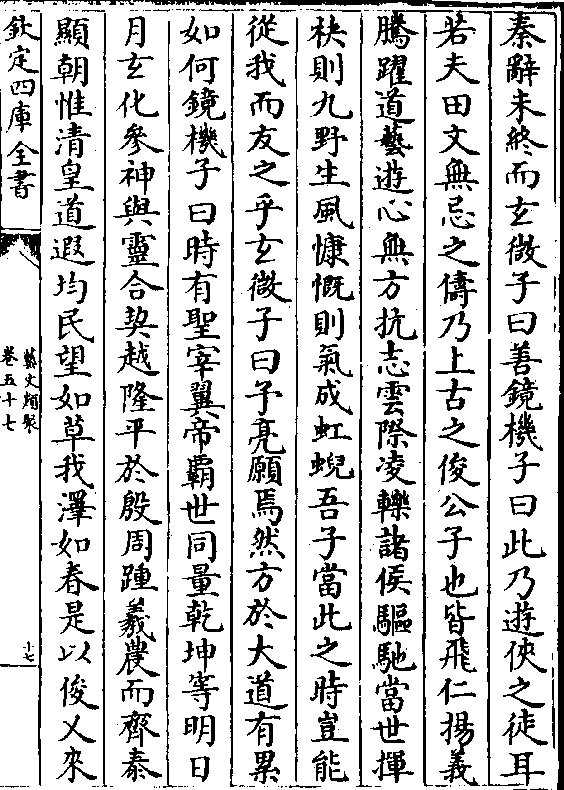 秦辭未終而玄微子曰善鏡機子曰此乃遊俠之徒耳
若夫田文無忌之儔乃上古之俊公子也皆飛仁揚義
騰躍道藝遊心無方抗志雲際凌轢諸侯驅馳當世揮
袂則九野生風慷慨則氣成虹蜺吾子當此之時豈能
從我而友之乎玄微子曰予亮願焉然方於大道有累
如何鏡機子曰時有聖宰翼帝霸世同量乾坤等明日
月玄化參神與靈合契越隆平於殷周踵羲農而齊泰
顯朝惟清皇道遐均民望如草我澤如春是以俊乂來
欽定四庫全書
藝文類聚
卷五十七
十七